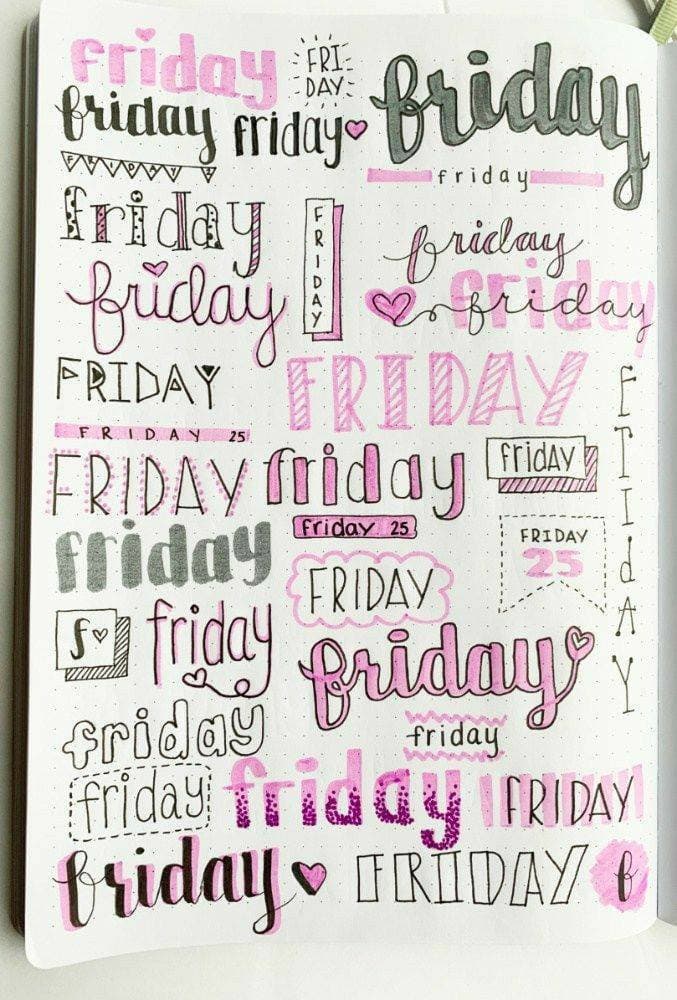 friday
FRI
DAY
friday
friday
friday
FRIDAY
friday
friday
FRIDAY
friday
friday
friday
friday
FRIDAY
FRIDAY
frIdAY
FRIDAY 25
FRIDAY
friday
fridAY
friday 25
FRIDAY
25
friday
FRIDAY
f
friday
friday
friday
friday
friday
friday
FRIDAY
friday
FRIDAY
f